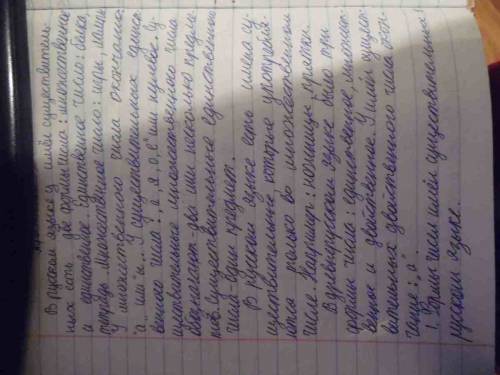 В русском языке у имён существитель-
ных есть две формы числа: множественное
и единственное. Единственное число: балка,
тетрадь. Множественное число: игры, лампы.
У множественного числа окончания:
"а" или "и". У существительных единст-
венного числа: , а, я, о, е" или нулевое. У
существительные множественного числа
обозначают два или несколько предме-
тов. Существительное единственного
числа - один предмет.
В русском языке есть имена су-
ществительные, которые употребля-
ются только во множественном
числе. Например: ножницы, прятки.
В древнерусском языке было три
формы числа: единственное, множест-
венные и двойственное. У имён существ-
вительных двойственного числа окон-
чание: "а".
! Форм числ имён существительных
русском языке.